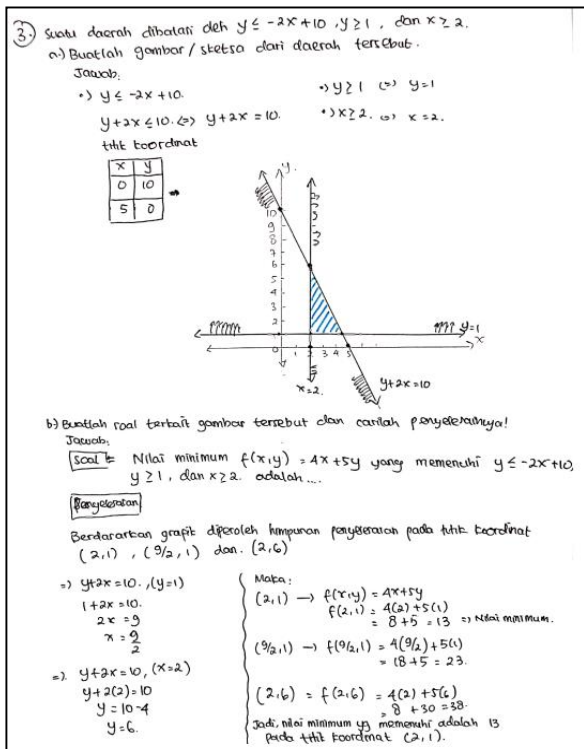 3. Suatu daerah dibatasi oleh y ≤ -2x + 10, y ≥ 1, dan x ≥ 2.
a.) Buatlah gambar / sketsa dari daerah tersebut.
Jawab:
•) y ≤ -2x + 10.
y + 2x ≤ 10. (=) y + 2x = 10.
titik koordinat
x y
0 10
5 0
•) y ≥ 1 (=) y = 1
•) x ≥ 2. (=) x = 2.
y
10
9
8
7
6
5
4
3
2
0 1 2 3 4 5
y=1
x
x=2.
y+2x=10
b.) Buatlah soal terkait gambar tersebut dan carilah penyelesaiannya!
Jawab:
Soal = Nilai minimum f(x,y) = 4x + 5y yang memenuhi y ≤ -2x + 10,
y ≥ 1, dan x ≥ 2. adalah....
Penyelesaian
Berdasarkan grafik diperoleh himpunan penyelesaian pada titik koordinat
(2,1), (9/2, 1) dan. (2,6)
=) y + 2x = 10., (y=1)
1 + 2x = 10.
2x = 9
x = 9/2
=). y + 2x = 10, (x=2)
y + 2(2) = 10
y = 10 - 4
y = 6.
Maka:
(2,1) → f(x,y) = 4x + 5y
f(2,1) = 4(2) + 5(1)
= 8 + 5 = 13 =) Nilai minimum.
(9/2,1) → f(9/2,1) = 4(9/2) + 5(1)
= 18 + 5 = 23.
(2,6) = f(2,6) = 4(2) + 5(6)
= 8 + 30 = 38.
Jadi, nilai minimum yg memenuhi adalah 13
pada titik koordinat (2,1).